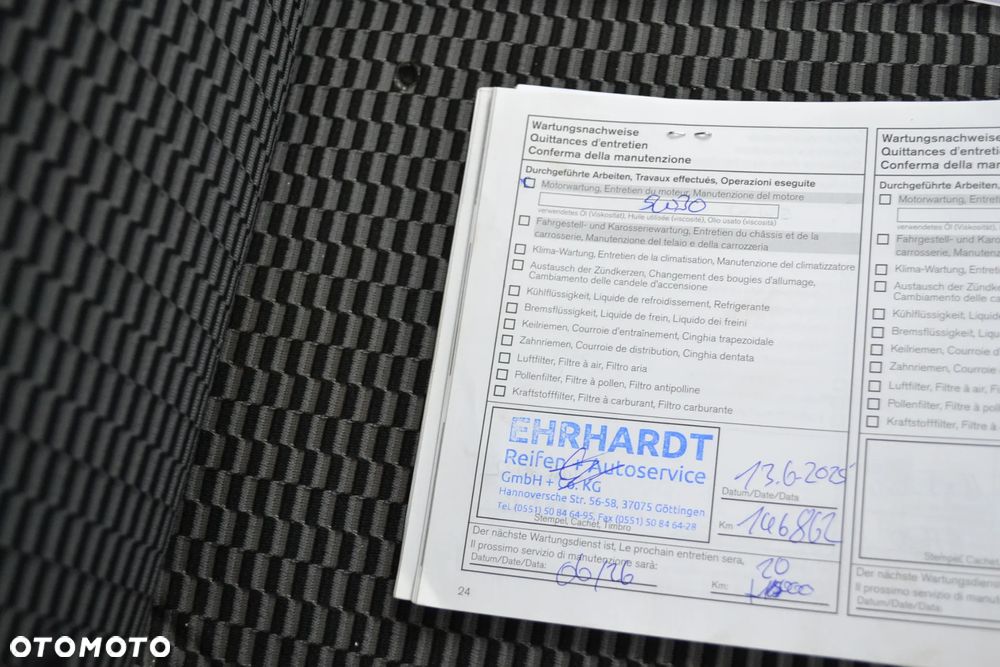 Wartungsnachweise
Quittances d'entretien
Conferma della manutenzione
Durchgeführte Arbeiten, Travaux effectués, Operazioni eseguite
Motorwartung, Entretien du moteur, Manutenzione del motore
5W30
verwendetes Öl (Viskosität), Huile utilisée (viscosité), Olio usato (viscosità)
Fahrgestell- und Karosseriewartung, Entretien du châssis et de la
carrosserie, Manutenzione del telaio e della carrozzeria
Klima-Wartung, Entretien de la climatisation, Manutenzione del climatizzatore
Austausch der Zündkerzen, Changement des bougies d'allumage,
Cambiamento delle candele d'accensione
Kühlflüssigkeit, Liquide de refroidissement, Refrigerante
Bremsflüssigkeit, Liquide de frein, Liquido dei freini
Keilriemen, Courroie d'entraînement, Cinghia trapezoidale
Zahnriemen, Courroie de distribution, Cinghia dentata
Luftfilter, Filtre à air, Filtro aria
Pollenfilter, Filtre à pollen, Filtro antipolline
Kraftstofffilter, Filtre à carburant, Filtro carburante
EHRHARDT
Reifen + Autoservice
GmbH + Co. KG
Hannoversche Str. 56-58, 37075 Göttingen
Tel. (0551) 50 84 64-95, Fax (0551) 50 84 64-28
Stempel, Cachet, Timbro
13.6.2025
Datum/Date/Data
Km 146862
Der nächste Wartungsdienst ist, Le prochain entretien sera,
Il prossimo servizio di manutenzione sarà:
Datum/Date/Data: 06/26
Km: 20
24
Wartungsnachweise
Quittances d'entreti
Conferma della man
Durchgeführte Arbeiten,
Motorwartung, Entreti
verwendetes Öl (Viskosität)
Fahrgestell- und Karos
carrosserie, Manutenz
Klima-Wartung, Entret
Austausch der Zündke
Cambiamento delle ca
Kühlflüssigkeit, Liquid
Bremsflüssigkeit, Liqu
Keilriemen, Courroie d
Zahnriemen, Courroie
Luftfilter, Filtre à air, F
Pollenfilter, Filtre à pol
Kraftstofffilter, Filtre à
Stempel, Cachet
Der nächste Wartungsdiens
Il prossimo servizio di manu
Datum/Date/Data:
OTOMOTO